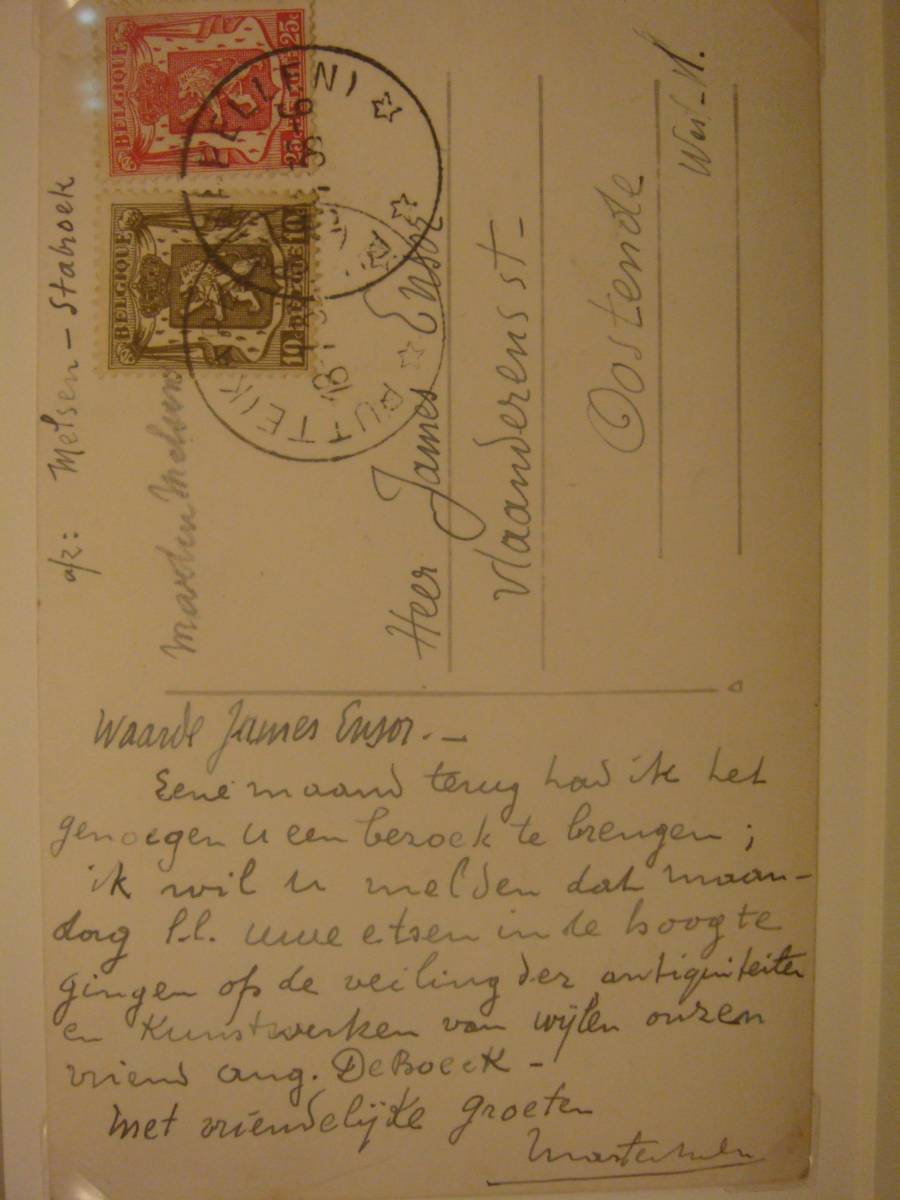 BELGIQUE 25c
25c BELGIE
BELGIQUE 10c
10c BELGIE
PUTTE (K
HELLEN)
afz: Melsen - Stabroek
Marten Melsen
Heer James Ensor
Vlaanderensst-
Oostende
West-Vl.
Waarde James Ensor.-
Eene maand terug had ik het
genoegen u een bezoek te brengen;
ik wil u melden dat maan-
dag l.l. uwe etsen in de hoogte
gingen op de veiling der antiquiteiten
en Kunstwerken van wijlen onzen
vriend Aug. DeBoeck -
Met vriendelijke groeten